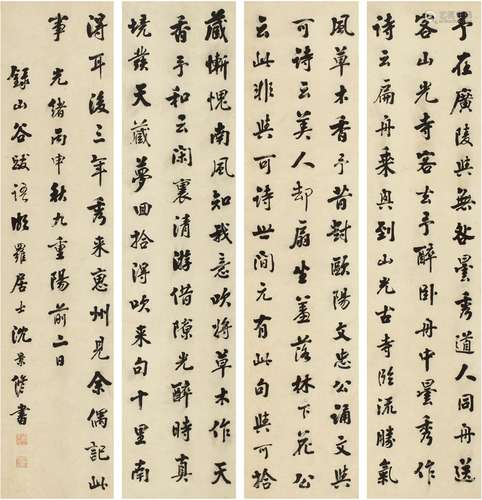 予在廣陵與無咎曇秀道人同舟送
客山光寺客去予醉卧舟中曇秀作
詩云扁舟乘興到山光古寺臨流勝氣
藏慚愧南風知我意吹將草木作天
香予和云閑裏清游借隙光醉時真
境發天藏夢回拾得吹来句十里南
風草木香予昔對歐陽文忠公誦文與
可詩云美人却扇坐羞落林下花公
云此非與可詩世間元有此句與可拾
得耳後三年秀来惠州見余偶記此
事 光緒丙申秋九重陽前二日
錄山谷跋語 羅居士沈景修書